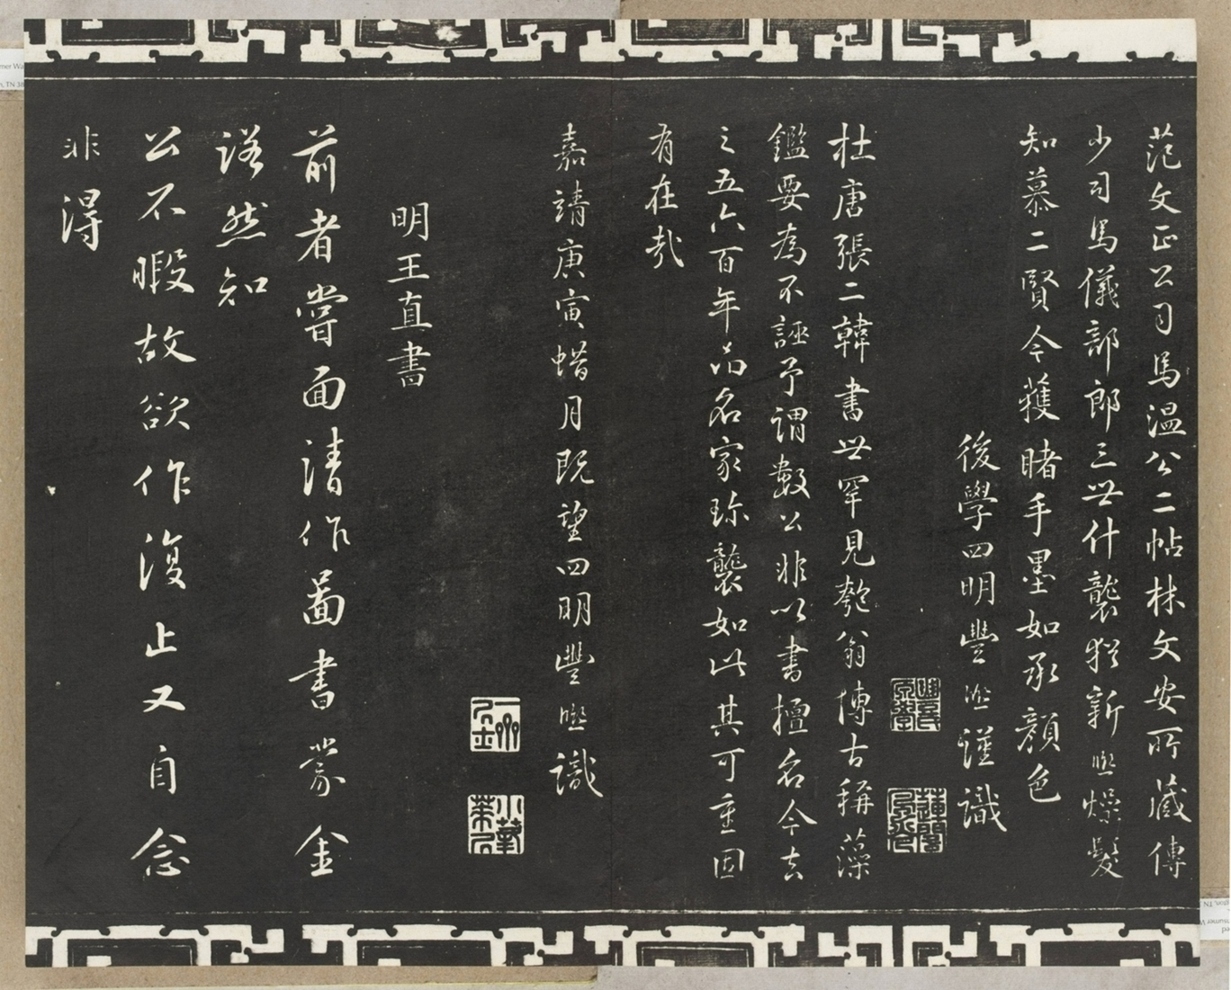 范文正公司馬溫公二帖林文安所藏傳
少司馬儀部郎三世什襲猶新熙燥髮
知慕二賢今獲睹手墨如承顏色
後學四明豐熙謹識
杜唐張二韓書世罕見匏翁博古稱藻
鑑要為不誣予謂數公非以書擅名今去
之五六百年而名家珍襲如此其可重固
有在哉
嘉靖庚寅蜡月既望四明豐熙識
明王直書
前者嘗面請作圖書蒙金
諾然知
公不暇故欲作復止又自念
非得